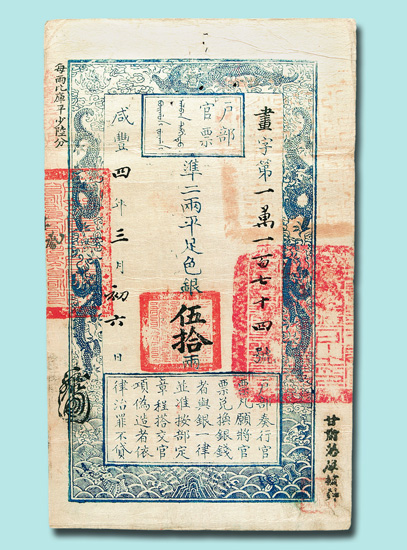 畫字第一萬一百七十四號
戶部
官票
準二兩平足色銀伍拾兩
咸豐四年三月初六日
戶部奏行官
票凡願將官
票兌換銀錢
者與銀一律
並准按部定
章程搭交官
項偽造者依
律治罪不貸
每兩比庫平少陸分
甘肅